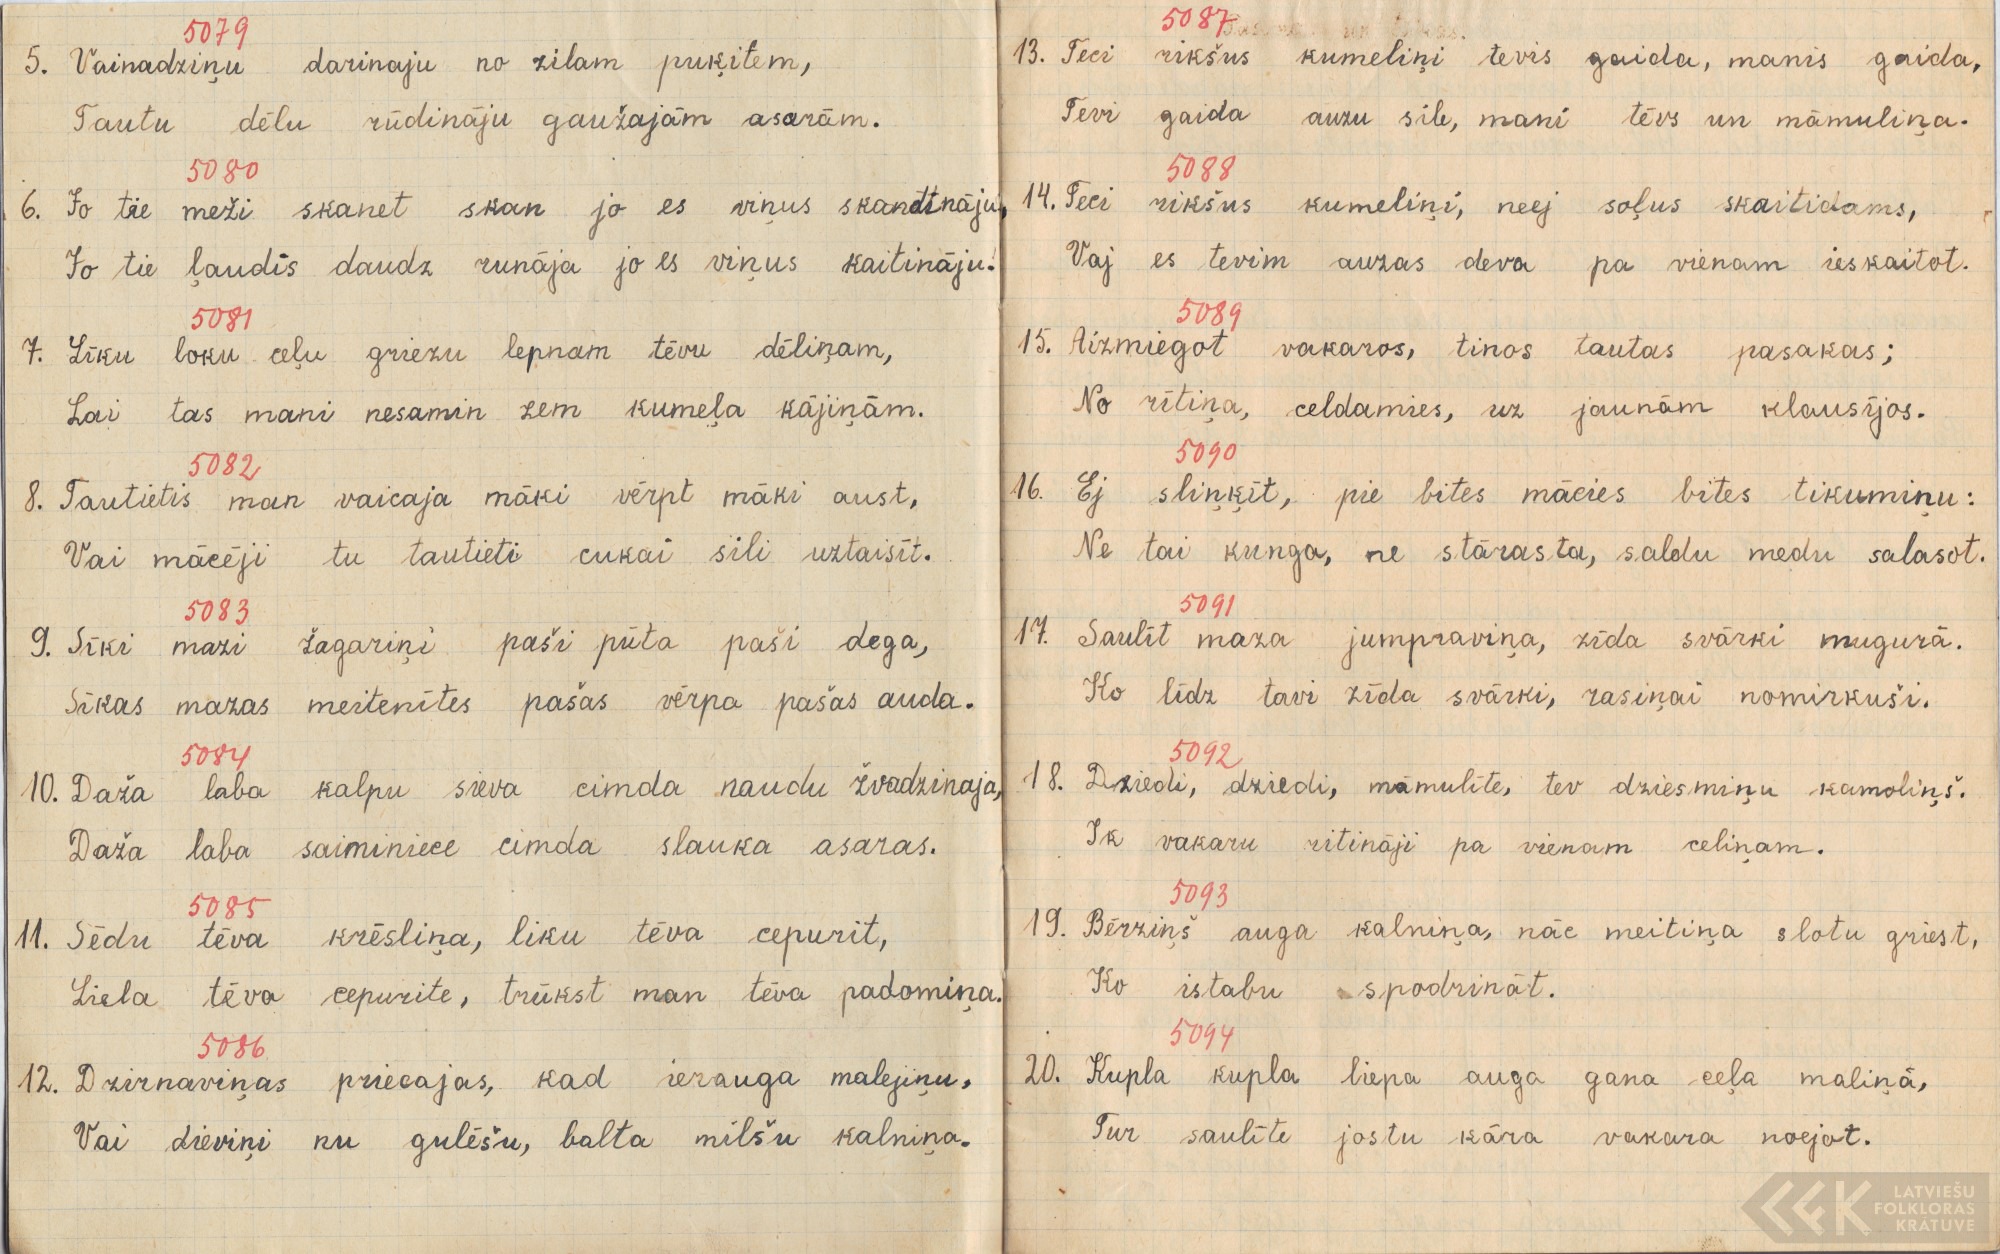 5079
5. Vainadziņu darinaju no zilam puķitem,
Tautu dēlu rūdināju gaužajām asarām.
5080
6. Jo tie meži skanet skan jo es viņus skandināju,
Jo tie ļaudis daudz runāja jo es viņus kaitināju.
5081
7. Līku loku ceļu griezu lepnam tēvu dēliņam,
Lai tas mani nesamin zem kumeļa kājiņām.
5082
8. Tautietis man vaicaja māki vērpt māki aust,
Vai mācēji tu tautieti cukai sili uztaisīt.
5083
9. Sīki mazi žagariņi paši pūta paši dega,
Sīkas mazas meitenītes pašas vērpa pašas auda.
5084
10. Daža laba kalpu sieva cimda naudu žvadzinaja,
Daža laba saiminiece cimda slauka asaras.
5085
11. Sēdu tēva krēsliņa, liku tēva cepurit,
Liela tēva cepurite, trūkst man tēva padomiņa.
5086
12. Dzirnaviņas priecajas, kad ierauga malejiņu,
Vai dieviņi nu gulēšu, balta milšu kalniņa.
5087
13. Teci rikšus kumeliņi tevis gaida, manis gaida,
Tevi gaida auzu sile, mani tēvs un māmuliņa.
5088
14. Teci rikšus kumeliņi, neej soļus skaitidams,
Vaj es tevim auzas deva pa vienam ieskaitot.
5089
15. Aizmiegot vakaros, tinos tautas pasakas;
No rītiņa, celdamies, uz jaunām klausījos.
5090
16. Ej sliņķīt, pie bites mācies bites tikumiņu:
Ne tai kunga, ne stārasta, saldu medu salasot.
5091
17. Saulīt maza jumpraviņa, zīda svārki mugurā.
Ko līdz tavi zīda svārki, rasiņai nomirkuši.
5092
18. Dziedi, dziedi, māmulīte, tev dziesmiņu kamoliņš.
Ik vakaru ritināji pa vienam celiņam.
5093
19. Bērziņš auga kalniņa, nāc meitiņa slotu griest,
Ko istabu spodrināt.
5094
20. Kupla kupla liepa auga gana ceļa maliņā,
Tur saulīte jostu kāra vakara noejot.
LATVIEŠU
FOLKLORAS
KRĀTUVE